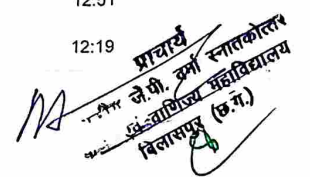 12:51
12:19
प्राचार्य
जे.पी. वर्मा स्नातकोत्तर
एवं वाणिज्य महाविद्यालय
बिलासपुर (छ.ग.)